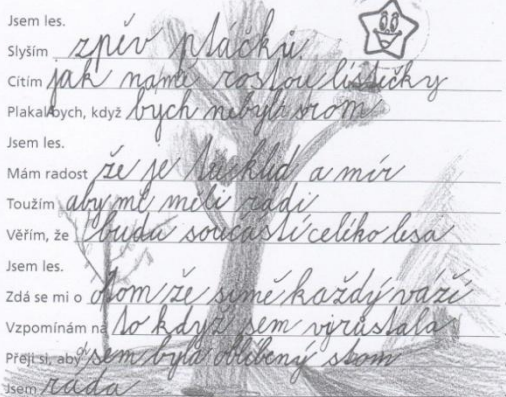 Jsem les.
Slyším zpěv ptáčků.
Cítím jak namě rostou lístečky
Plakal bych, když bych nebyla strom
Jsem les.
Mám radost že je tu klid a mír
Toužím aby mě měli rádi
Věřím, že budu součástí celého lesa
Jsem les.
Zdá se mi o otom že simě každý váží
Vzpomínám na to když sem vyrůstala
Přeji si, aby sem byla oblíbený strom
Jsem ráda